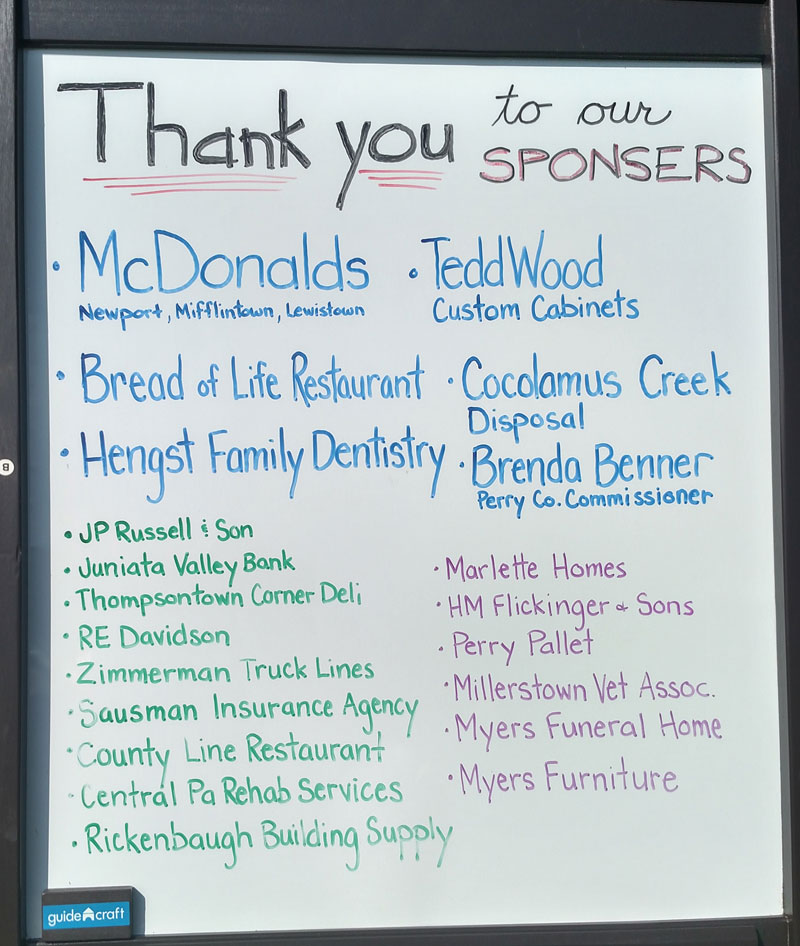 Thank you to our
SPONSERS
• McDonalds
Newport, Mifflintown, Lewistown
• Tedd Wood
Custom Cabinets
• Bread of Life Restaurant
• Cocolamus Creek
Disposal
• Hengst Family Dentistry
• Brenda Benner
Perry Co. Commissioner
• JP Russell & Son
• Juniata Valley Bank
• Thompsontown Corner Deli
• RE Davidson
• Zimmerman Truck Lines
• Sausman Insurance Agency
• County Line Restaurant
• Central Pa Rehab Services
• Rickenbaugh Building Supply
• Marlette Homes
• HM Flickinger & Sons
• Perry Pallet
• Millerstown Vet Assoc.
• Myers Funeral Home
• Myers Furniture
guidecraft
B